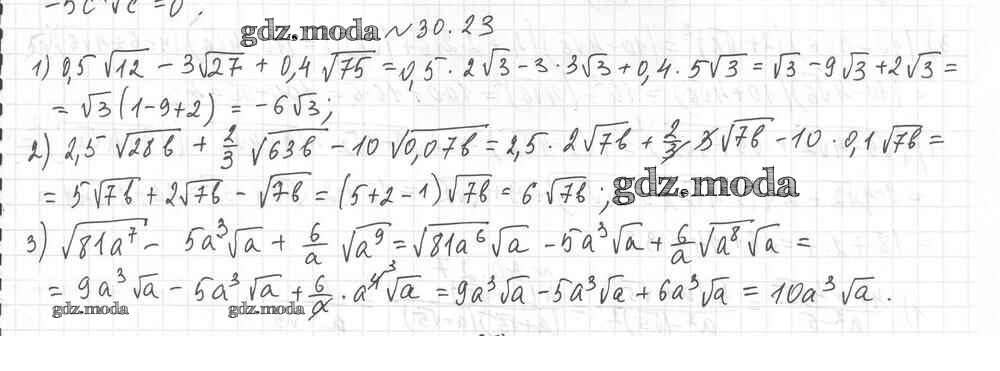 -5c⁴√c = 0;
gdz.moda №30.23
1) 0,5√12 - 3√27 + 0,4√75 = 0,5·2√3 - 3·3√3 + 0,4·5√3 = √3 - 9√3 + 2√3 =
= √3(1-9+2) = -6√3;
2) 2,5√28b + 2/3 √63b - 10√0,07b = 2,5·2√7b + 2/3 3√7b - 10·0,1√7b =
= 5√7b + 2√7b - √7b = (5+2-1)√7b = 6√7b; gdz.moda
3) √81a⁷ - 5a³√a + 6/a √a⁹ = √81a⁶√a - 5a³√a + 6/a √a⁸√a =
= 9a³√a - 5a³√a + 6/a · a⁴³√a = 9a³√a - 5a³√a + 6a³√a = 10a³√a.
gdz.moda gdz.moda